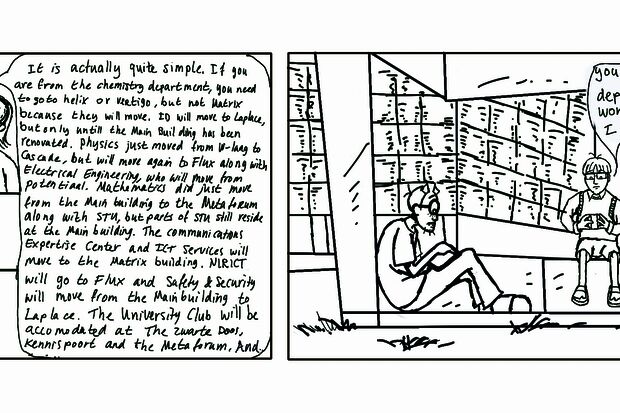 It is actually quite simple. If you
are from the chemistry department, you need
to goto helix or vertigo, but not Matrix
because they will move. ID will move to Laplace,
but only untill the Main Building has been
renovated. Physics just moved from W-laag to
Cascade, but will move again to Flux along with
Electrical Engineering, who will move from
potentiaal. Mathematics did just move
from the Main building to the Metaforum
along with STU, but parts of STU still reside
at the Main building. The communications
Expertise Center and ICT Services will
move to the Matrix building. NIRICT
will go to Flux and Safety & Security
will move from the Main building to
Laplace. The University Club will be
accomodated at The Zwarte Doos,
Kennispoort and the Metaforum. And
you
dep
wor
I